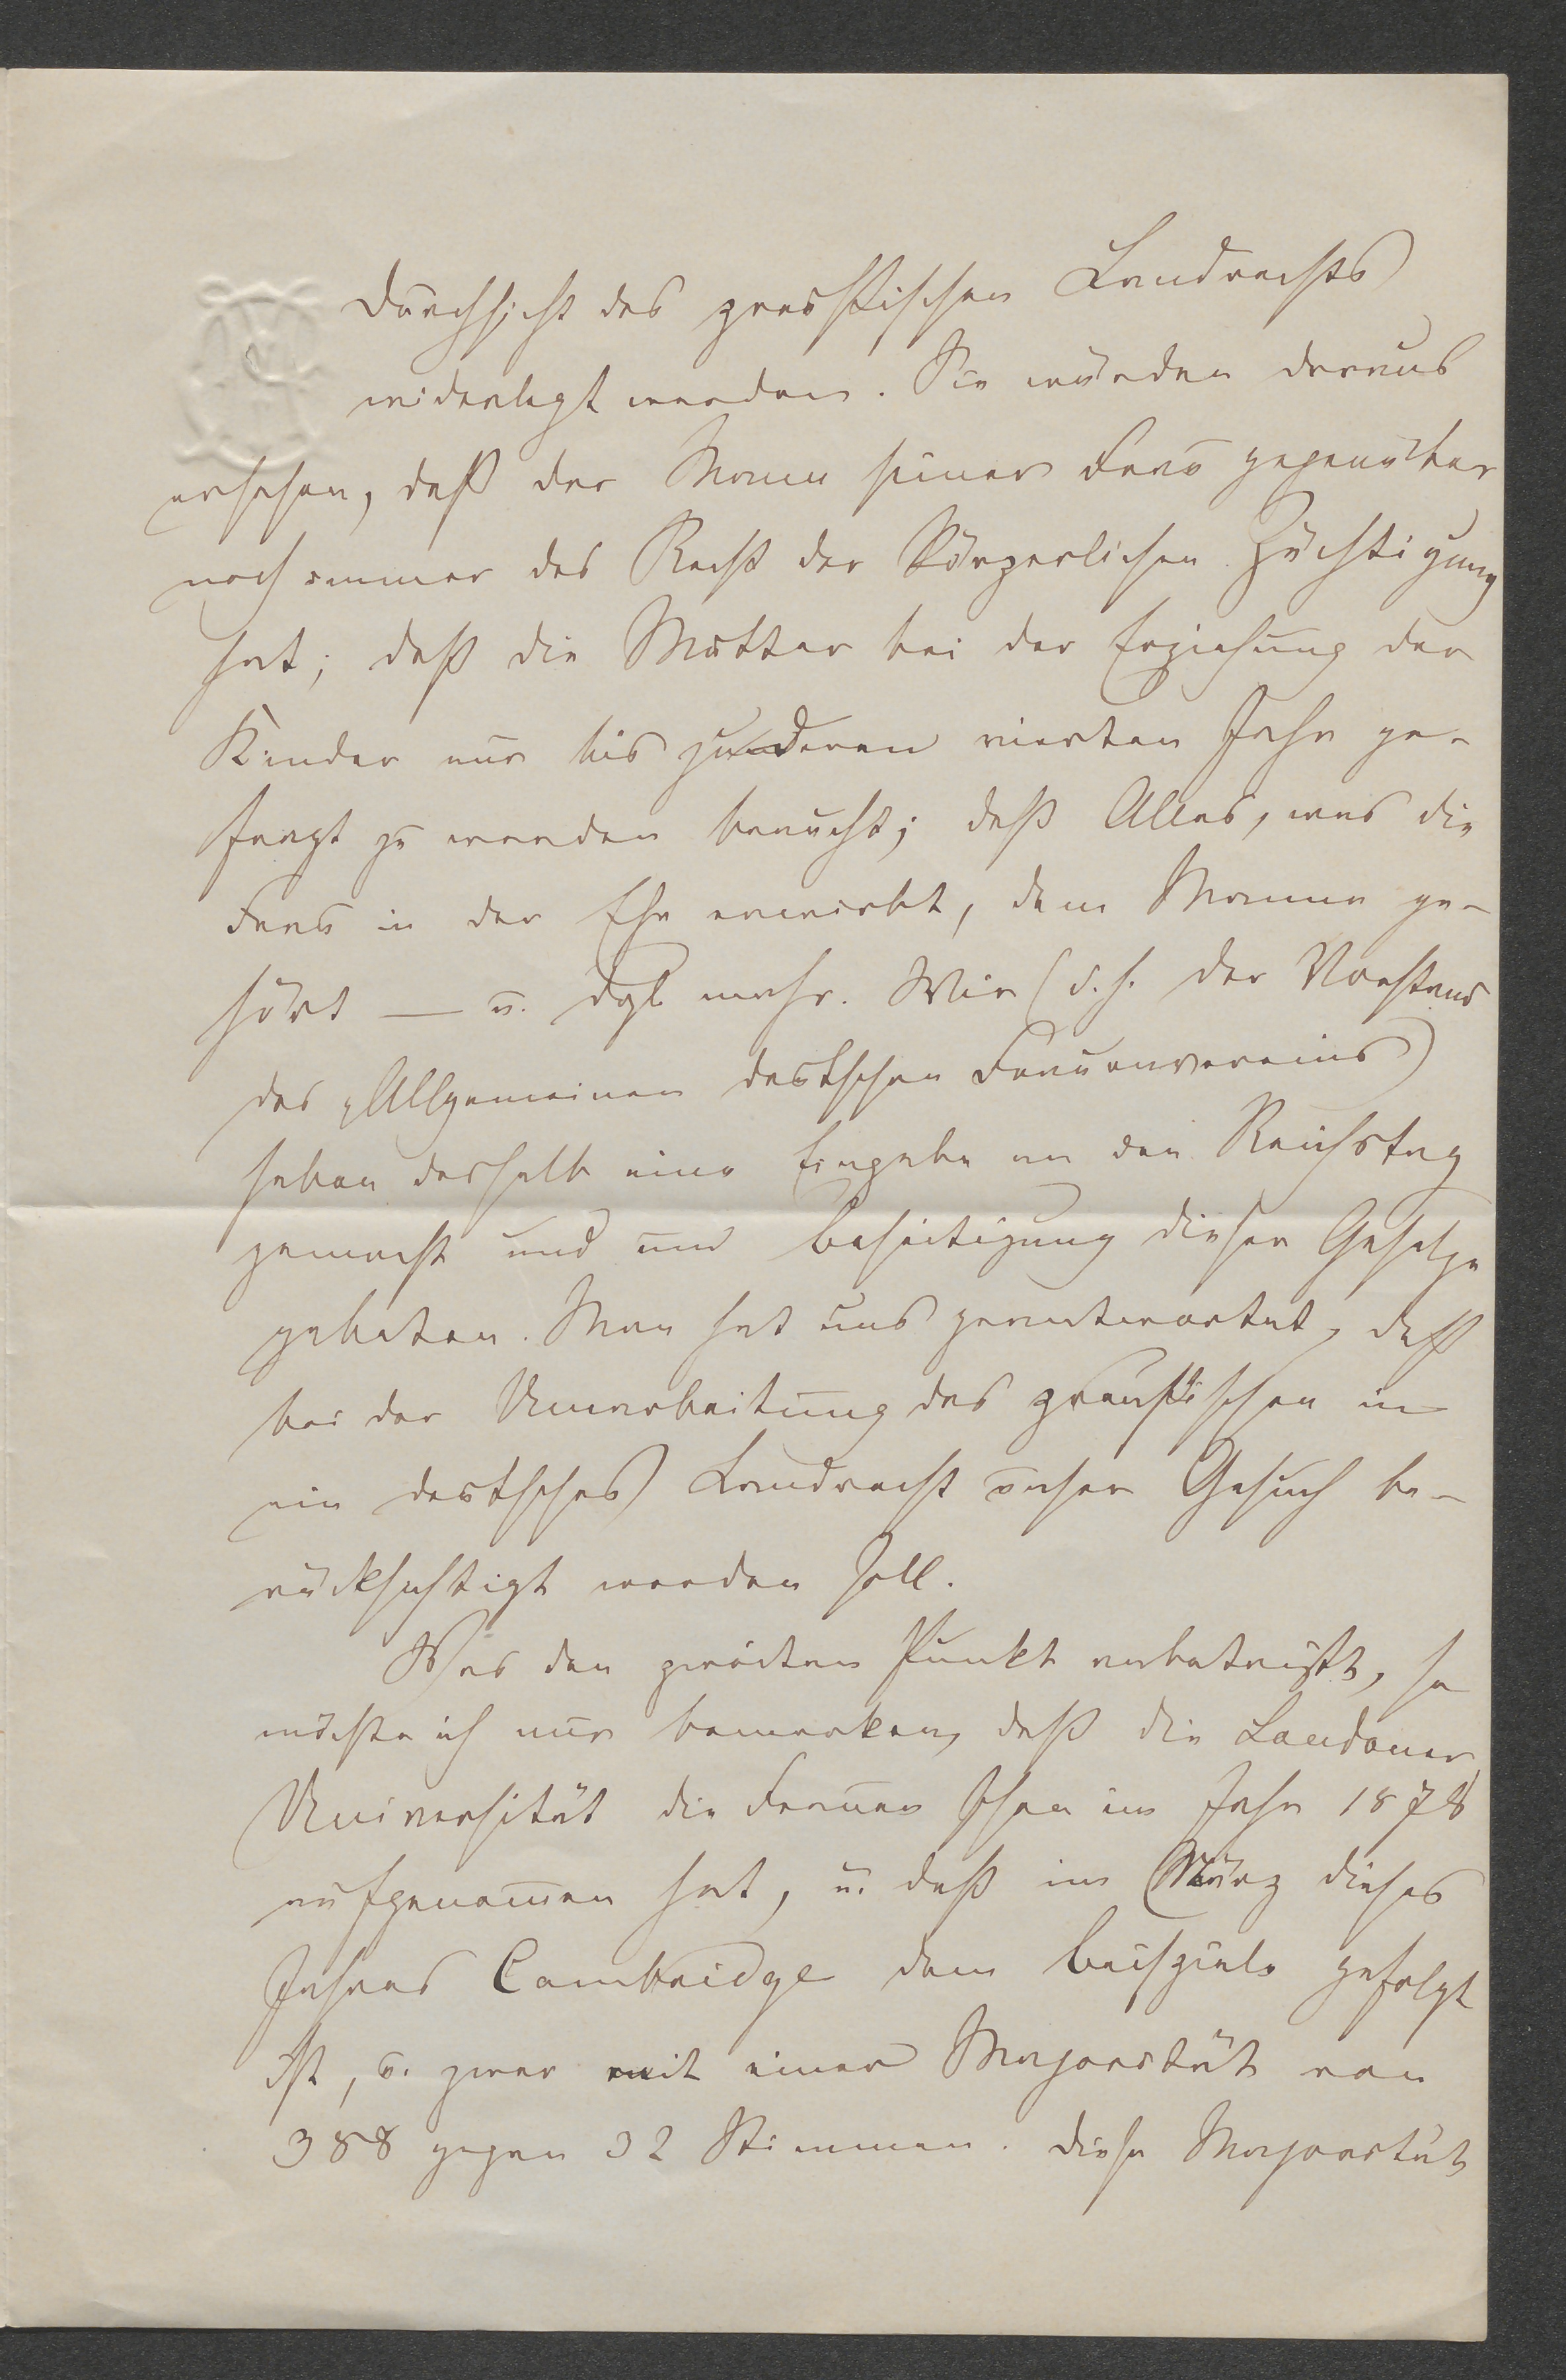 Durchsicht des preußischen Landrechts
widerlegt werden. Sie würden daraus
ersehen, daß der Mann seiner Frau gegenüber
noch immer das Recht der körperlichen Züchtigung
hat; daß die Mutter bei der Erziehung der
Kinder nur bis zu deren vierten Jahr ge-
fragt zu werden braucht; daß Alles, was die
Frau in der Ehe erwirbt, dem Manne ge-
hört — u. dgl mehr. Wir (d. h. der Vorstand
des Allgemeinen deutschen Frauenvereins)
haben deshalb eine Eingabe an den Reichstag
gemacht und um Beseitigung dieser Gesetze
gebeten. Man hat uns geantwortet, daß
bei der Umarbeitung des preußischen in
ein deutsches Landrecht unser Gesuch be-
rücksichtigt werden soll.
Was den zweiten Punkt anbetrifft, so
möchte ich nur bemerken, daß die Londoner
Universität die Frauen schon im Jahr 1878
aufgenomen hat, u. daß im März dieses
Jahres Cambridge dem Beispiele gefolgt
ist, u. zwar mit einer Majorität von
388 gegen 32 Stimmen. Diese Majorität